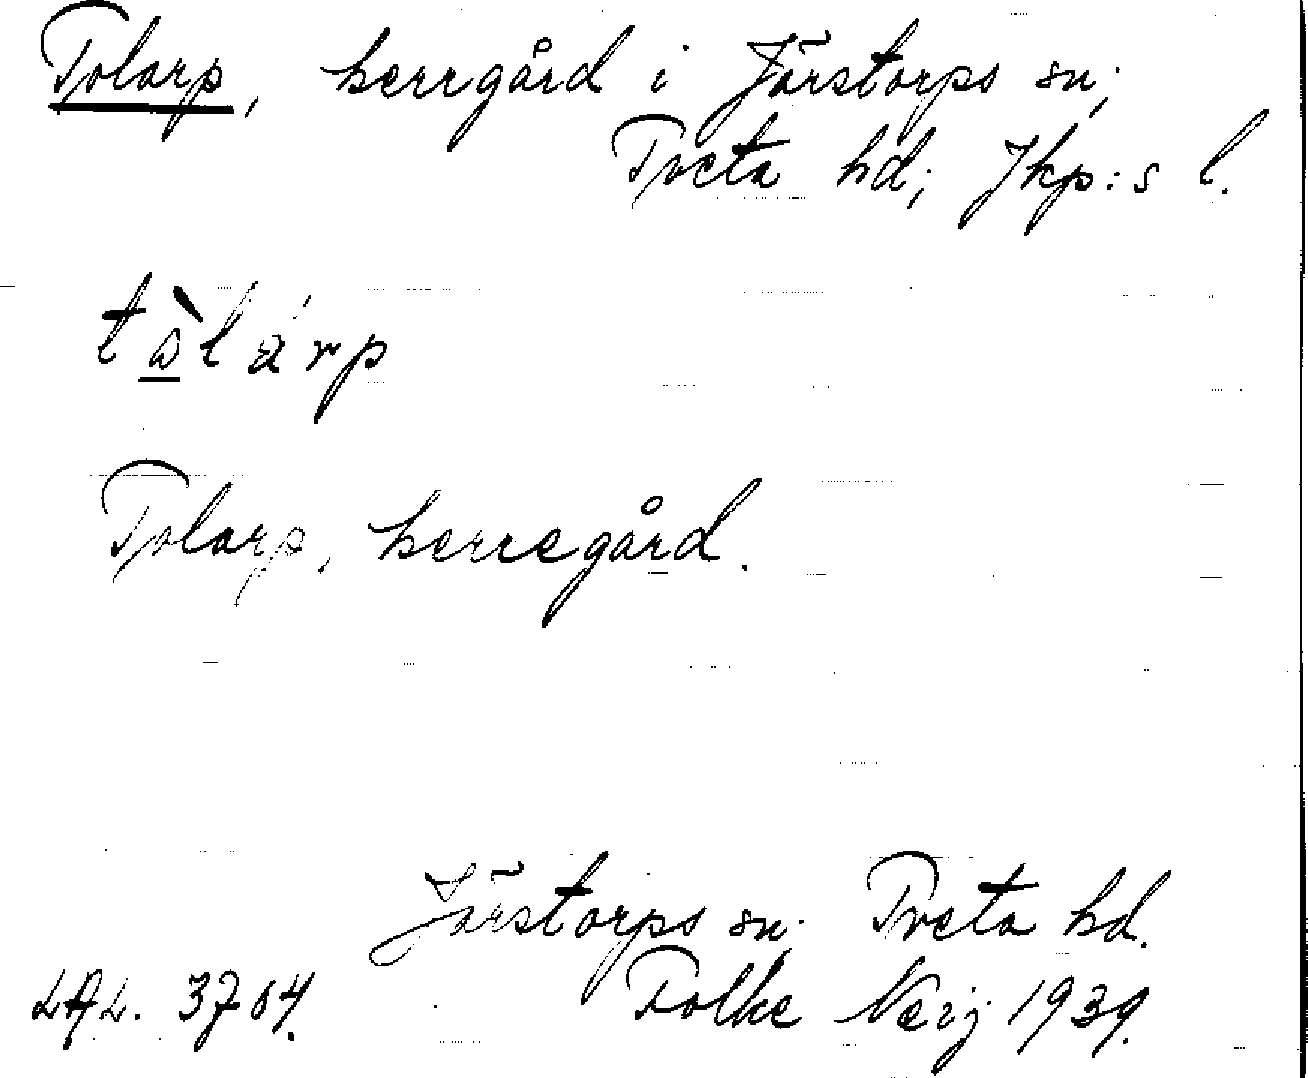 Tolarp, herrgård i Järstorps sn;
Tveta hd; Jkp:s l.
tὰlárp
Tolarp, herregård.
Järstorps sn; Tveta hd.
LAL. 3704. Folke Neij 1939.